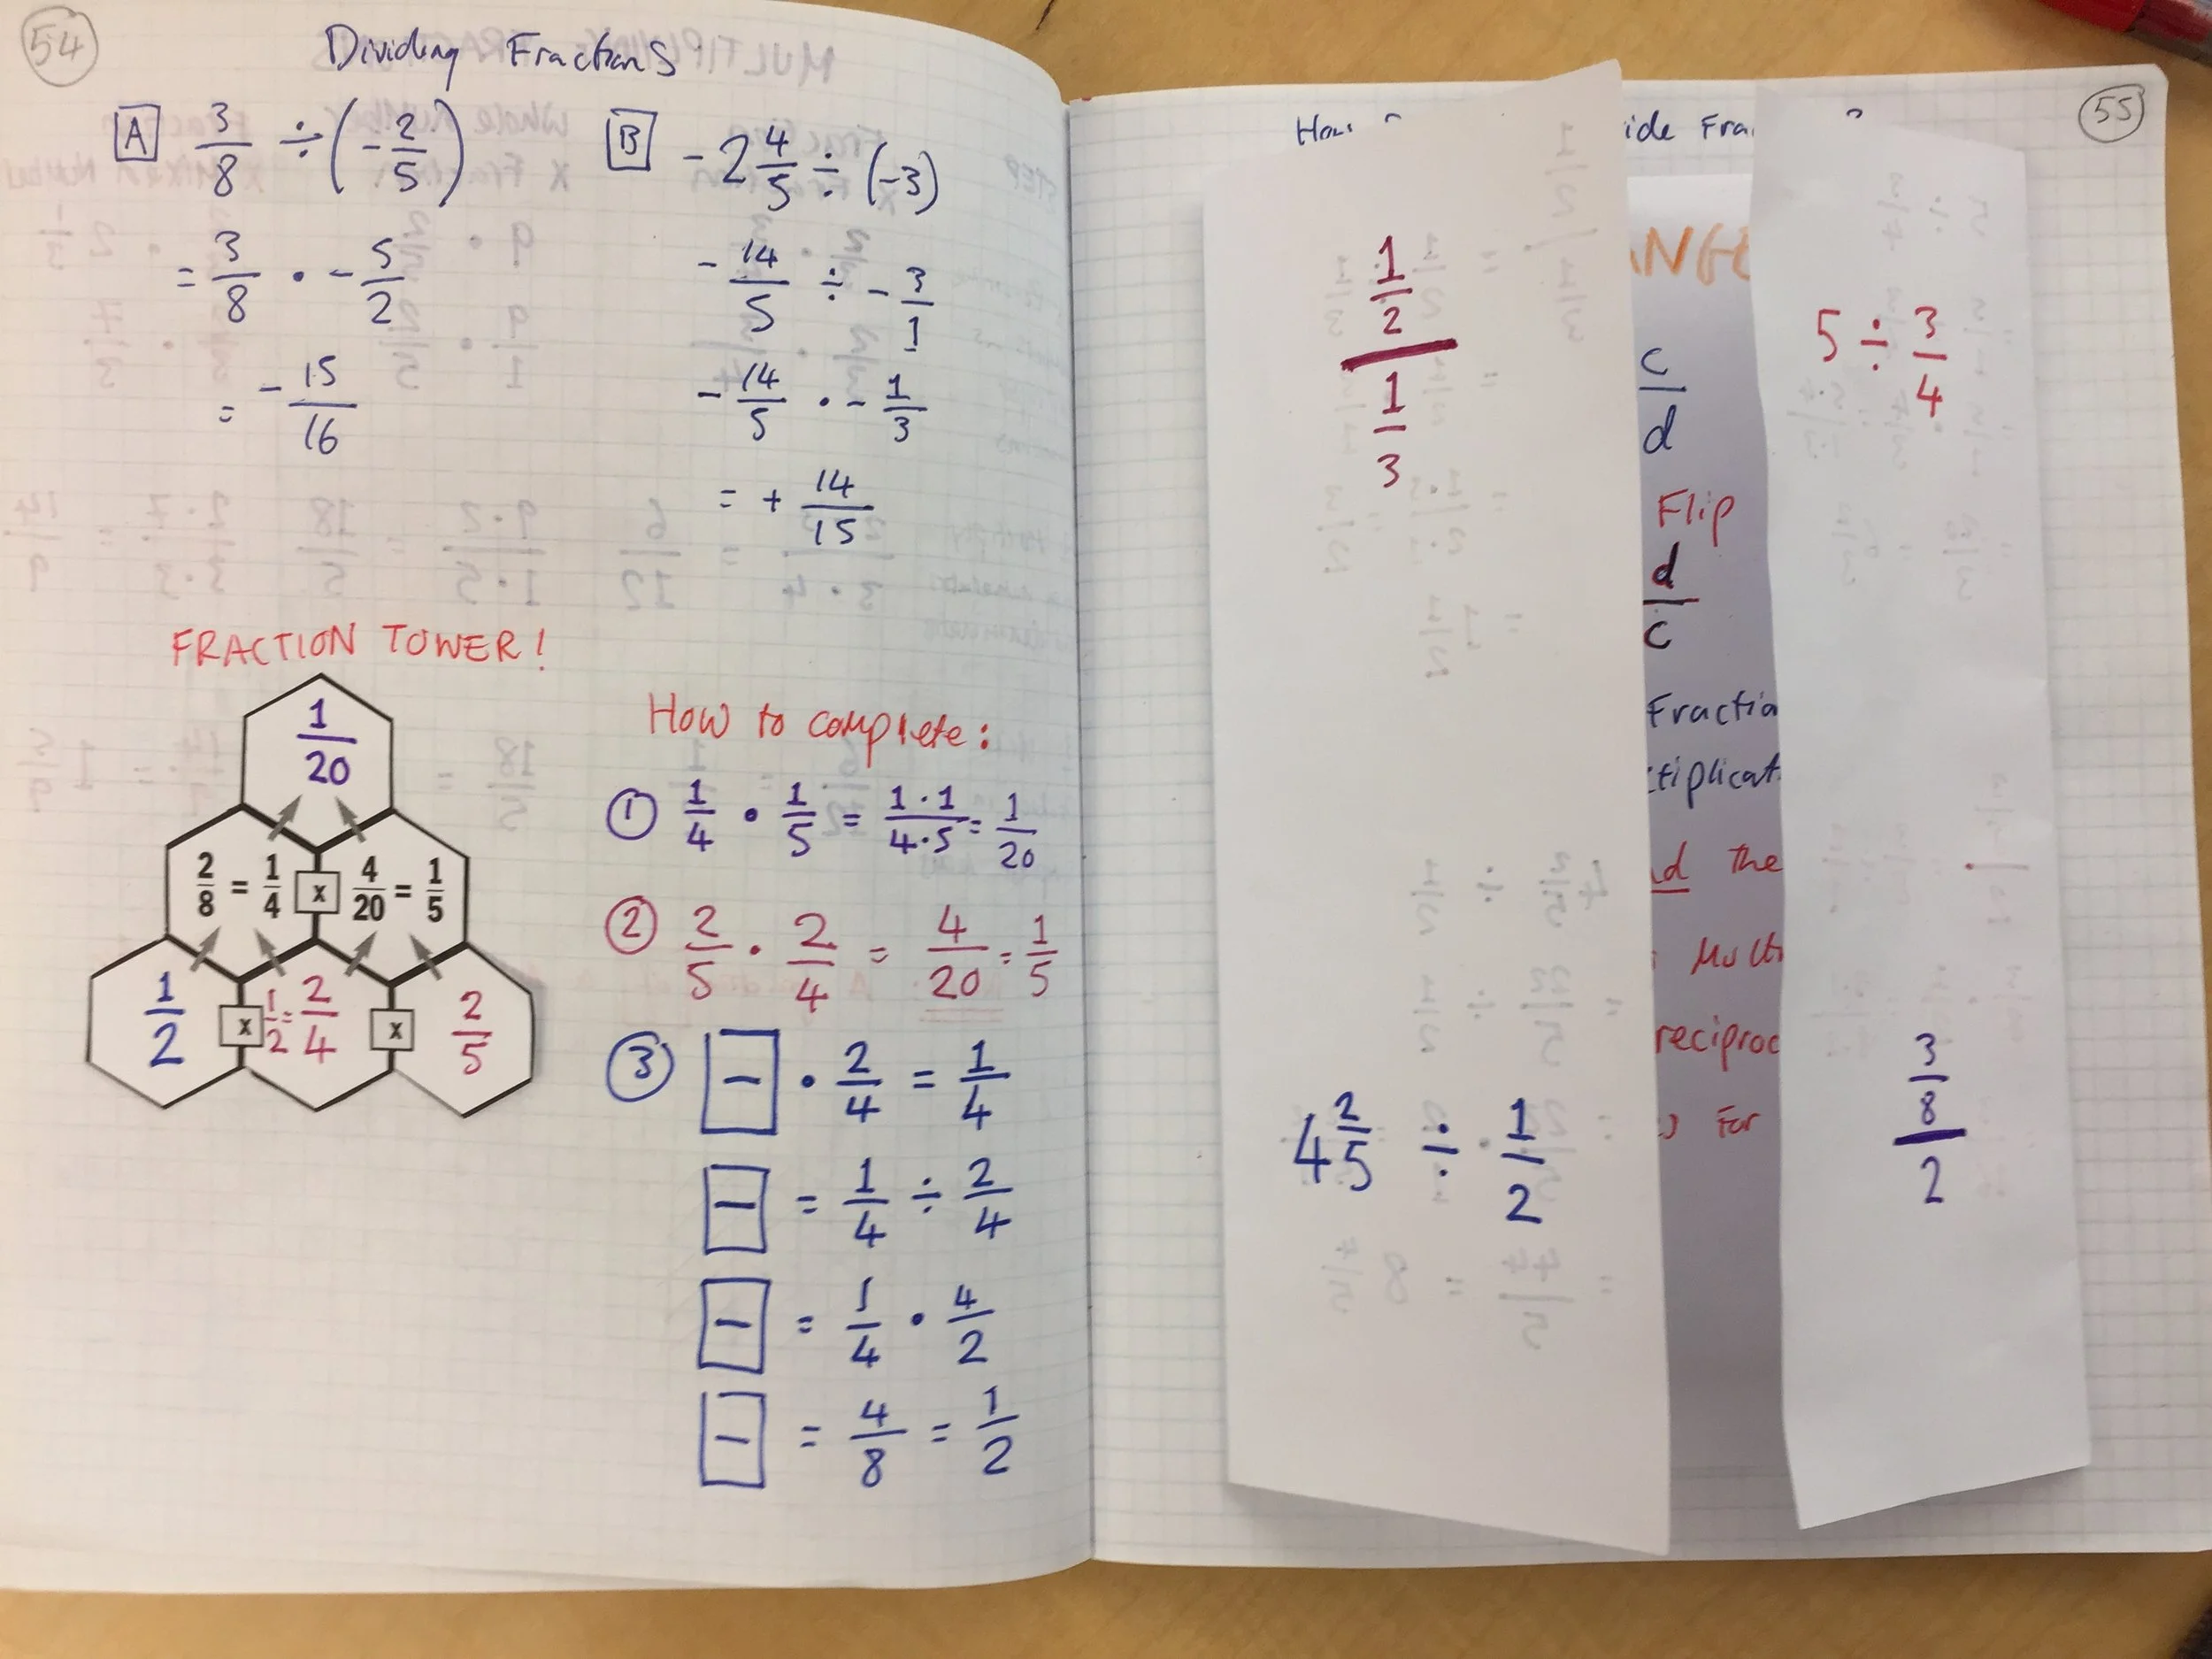 54
Dividing Fractions
A 3/8 ÷ (-2/5)
= 3/8 · -5/2
= -15/16
B -2 4/5 ÷ (-3)
-14/5 ÷ -3/1
-14/5 · -1/3
= + 14/15
FRACTION TOWER!
1/20
2/8 = 1/4 x 4/20 = 1/5
1/2 x 1/2 = 2/4 x 2/5
How to complete:
① 1/4 · 1/5 = 1·1/4·5 = 1/20
② 2/5 · 2/4 = 4/20 = 1/5
③ □ · 2/4 = 1/4
□ = 1/4 ÷ 2/4
□ = 1/4 · 4/2
□ = 4/8 = 1/2
55
ide Fra
1/2
1/3
4 2/5 ÷ 1/2
ANGE
c/d
Flip
d/c
Fractio
tiplicat
d the
Multi
reciproc
For
5 ÷ 3/4
3/8
2